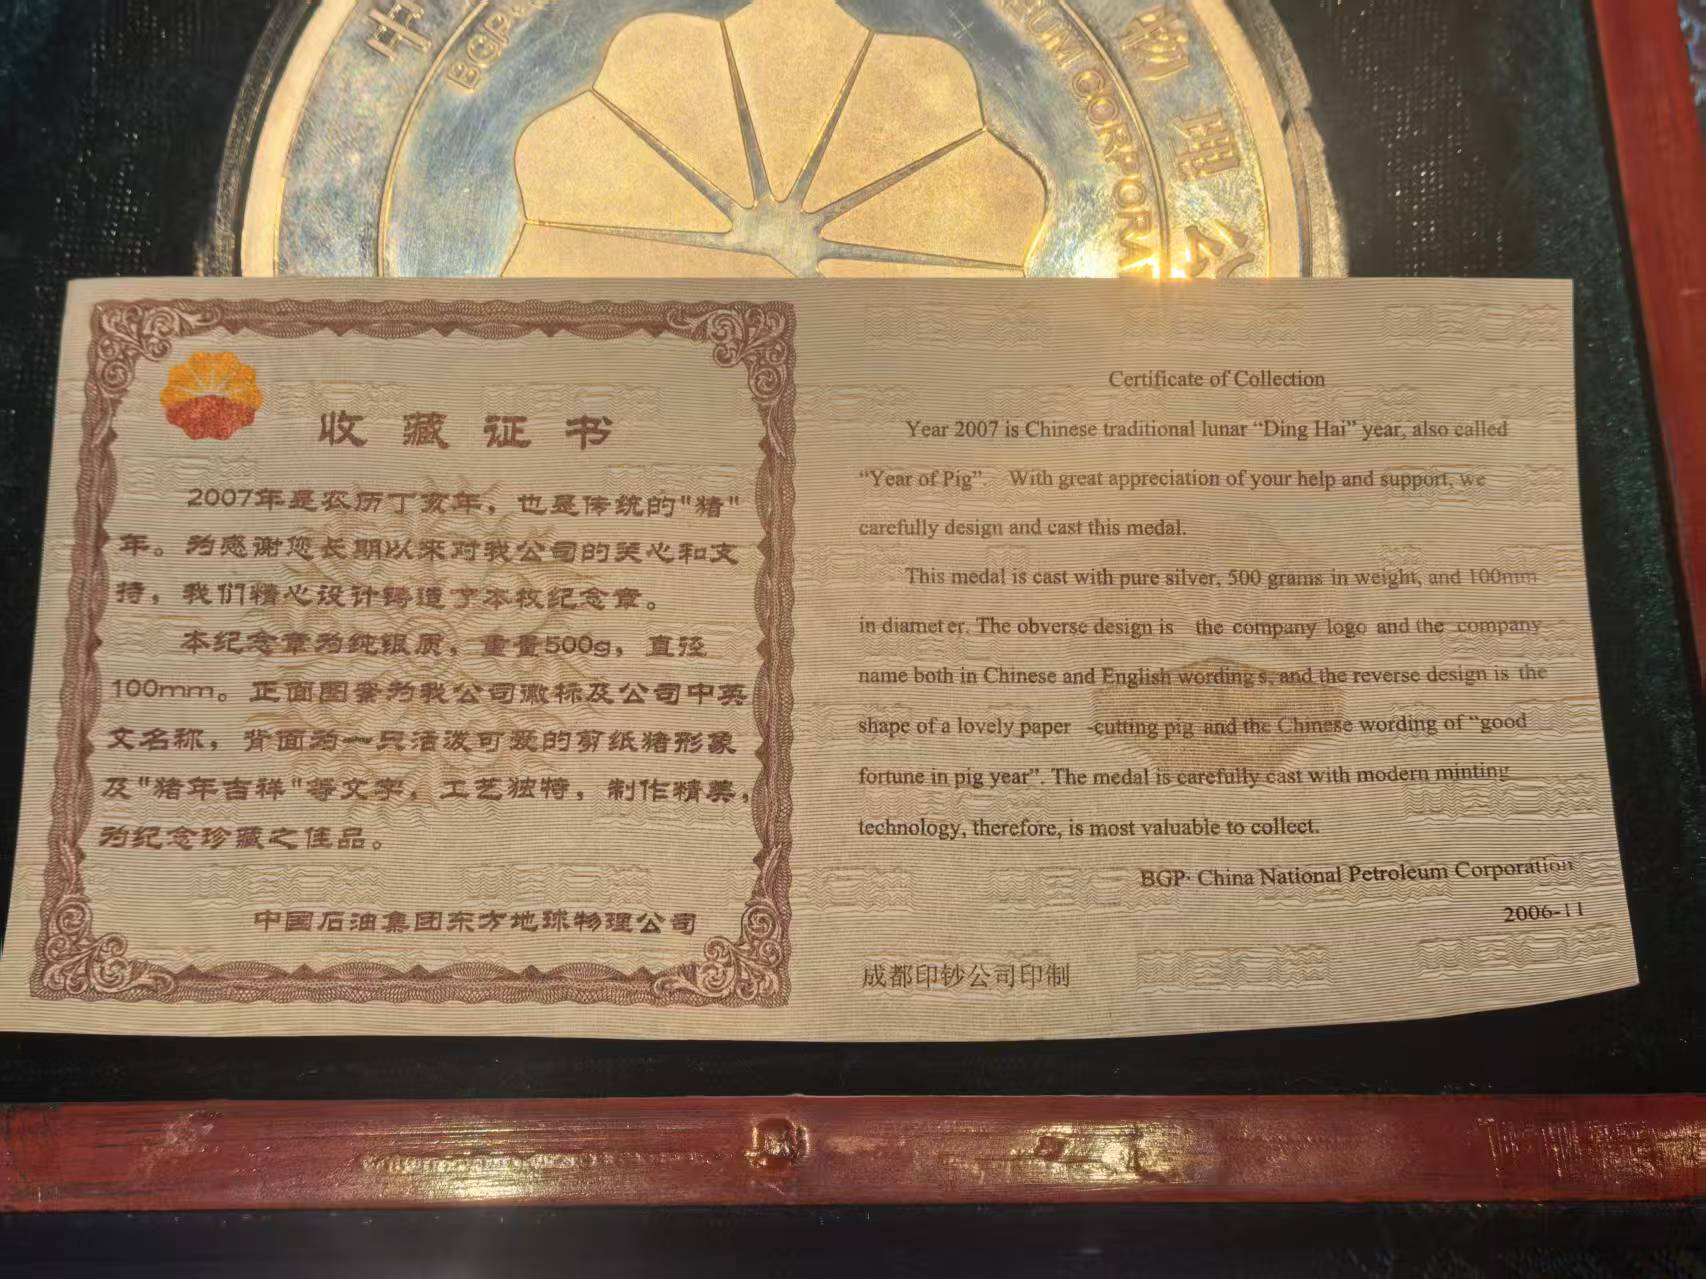 中
物理公
BGP
UM CORPORA
收藏证书
2007年是农历丁亥年，也是传统的"猪"
年。为感谢您长期以来对我公司的关心和支
持，我们精心设计铸造了本枚纪念章。
本纪念章为纯银质，重量500g，直径
100mm。正面图案为我公司徽标及公司中英
文名称，背面为一只活泼可爱的剪纸猪形象
及"猪年吉祥"等文字，工艺独特，制作精美，
为纪念珍藏之佳品。
中国石油集团东方地球物理公司
Certificate of Collection
Year 2007 is Chinese traditional lunar “Ding Hai” year, also called
“Year of Pig”. With great appreciation of your help and support, we
carefully design and cast this medal.
This medal is cast with pure silver, 500 grams in weight, and 100mm
in diameter. The obverse design is the company logo and the company
name both in Chinese and English wordings, and the reverse design is the
shape of a lovely paper -cutting pig and the Chinese wording of “good
fortune in pig year”. The medal is carefully cast with modern minting
technology, therefore, is most valuable to collect.
BGP· China National Petroleum Corporation
2006-11
成都印钞公司印制